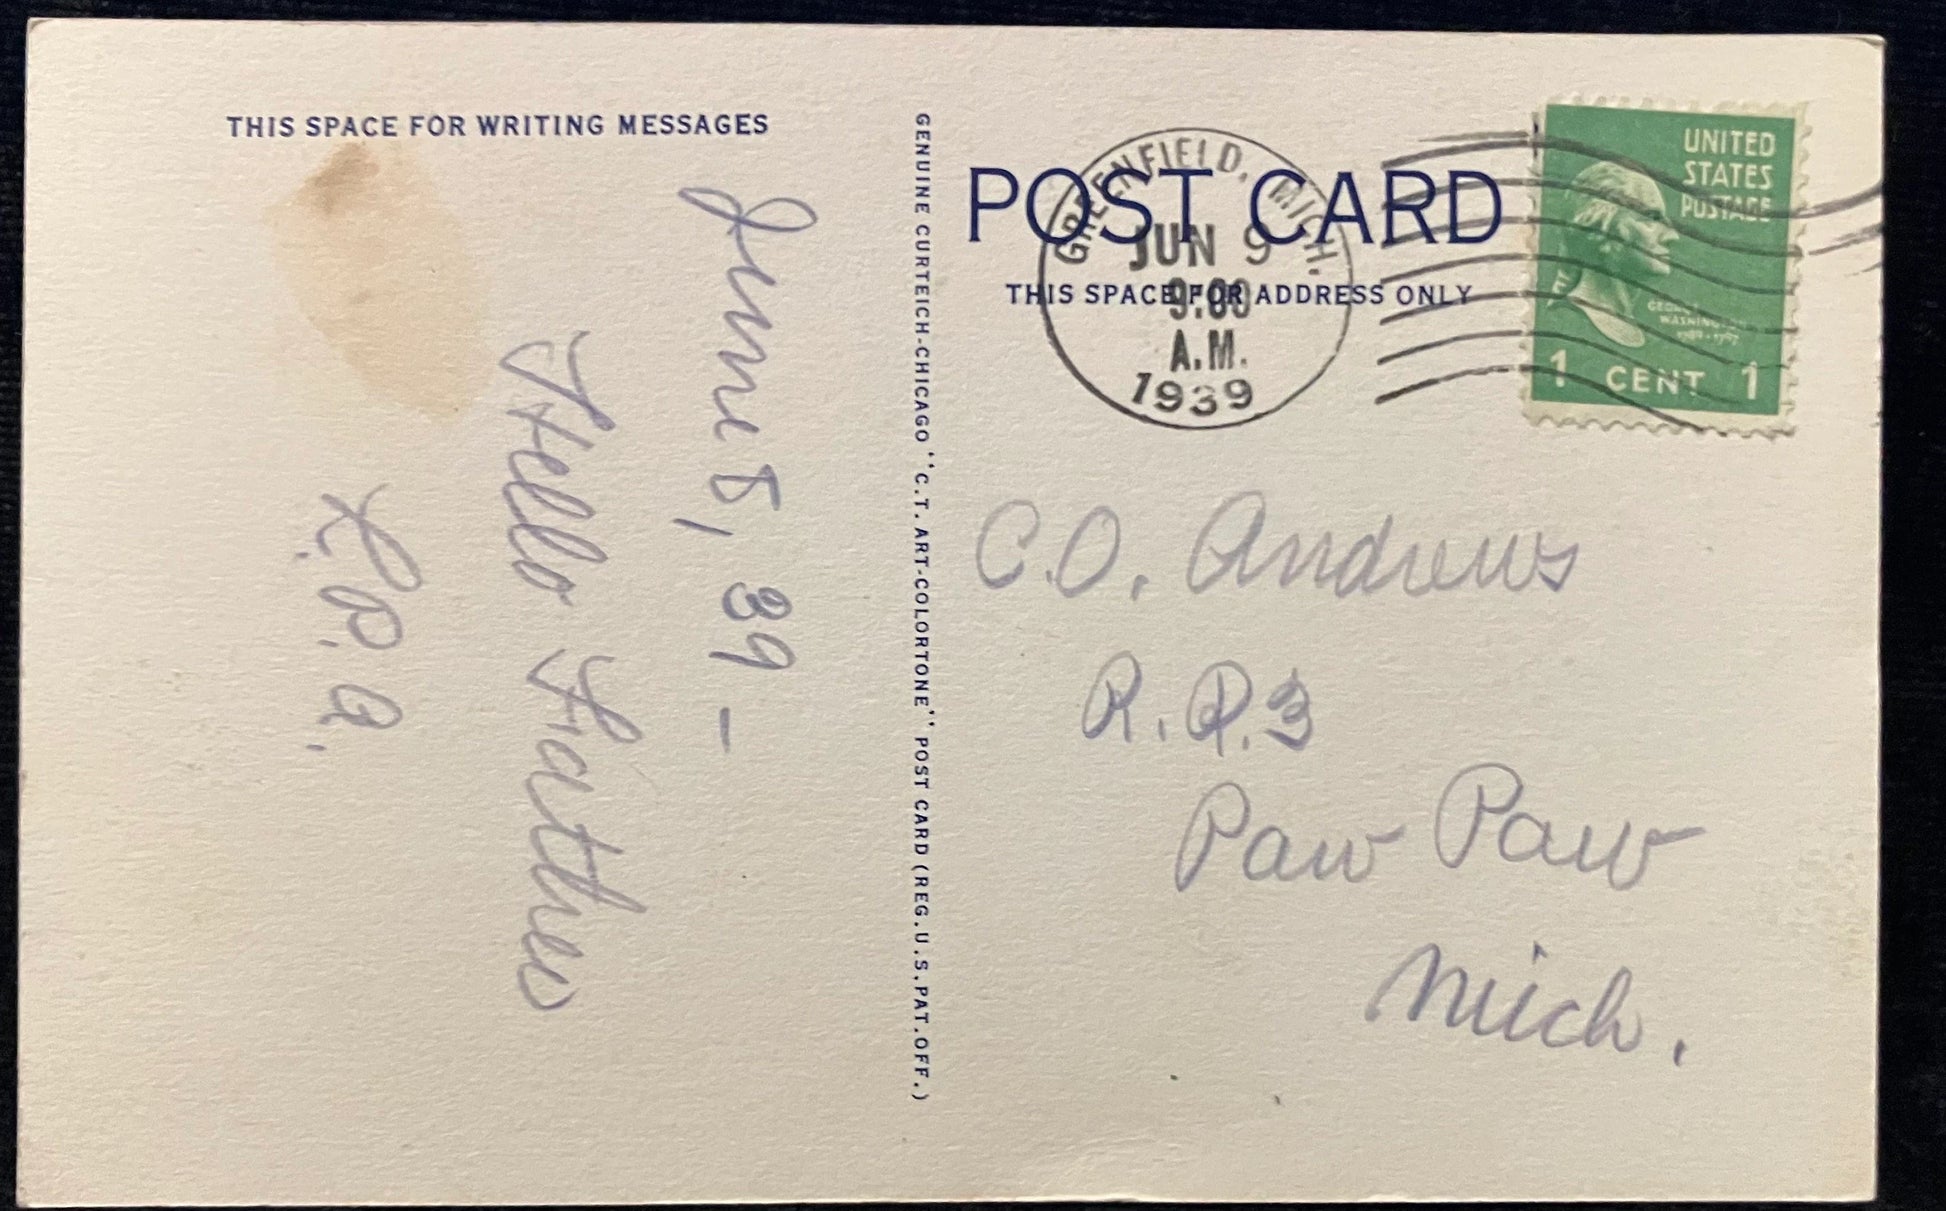 THIS SPACE FOR WRITING MESSAGES
June 5, 39 -
Hello Father
L. P. A.
GENUINE CURTEICH-CHICAGO "C.T. ART-COLORTONE" POST CARD (REG. U.S. PAT. OFF.)
POST CARD
THIS SPACE FOR ADDRESS ONLY
GREENFIELD, MICH.
JUN 9
9:00
A.M.
1939
UNITED
STATES
POSTAGE
GEORGE
WASHINGTON
1789-1797
1 CENT 1
C.O. Andrews
R.R.3
Paw Paw
Mich.